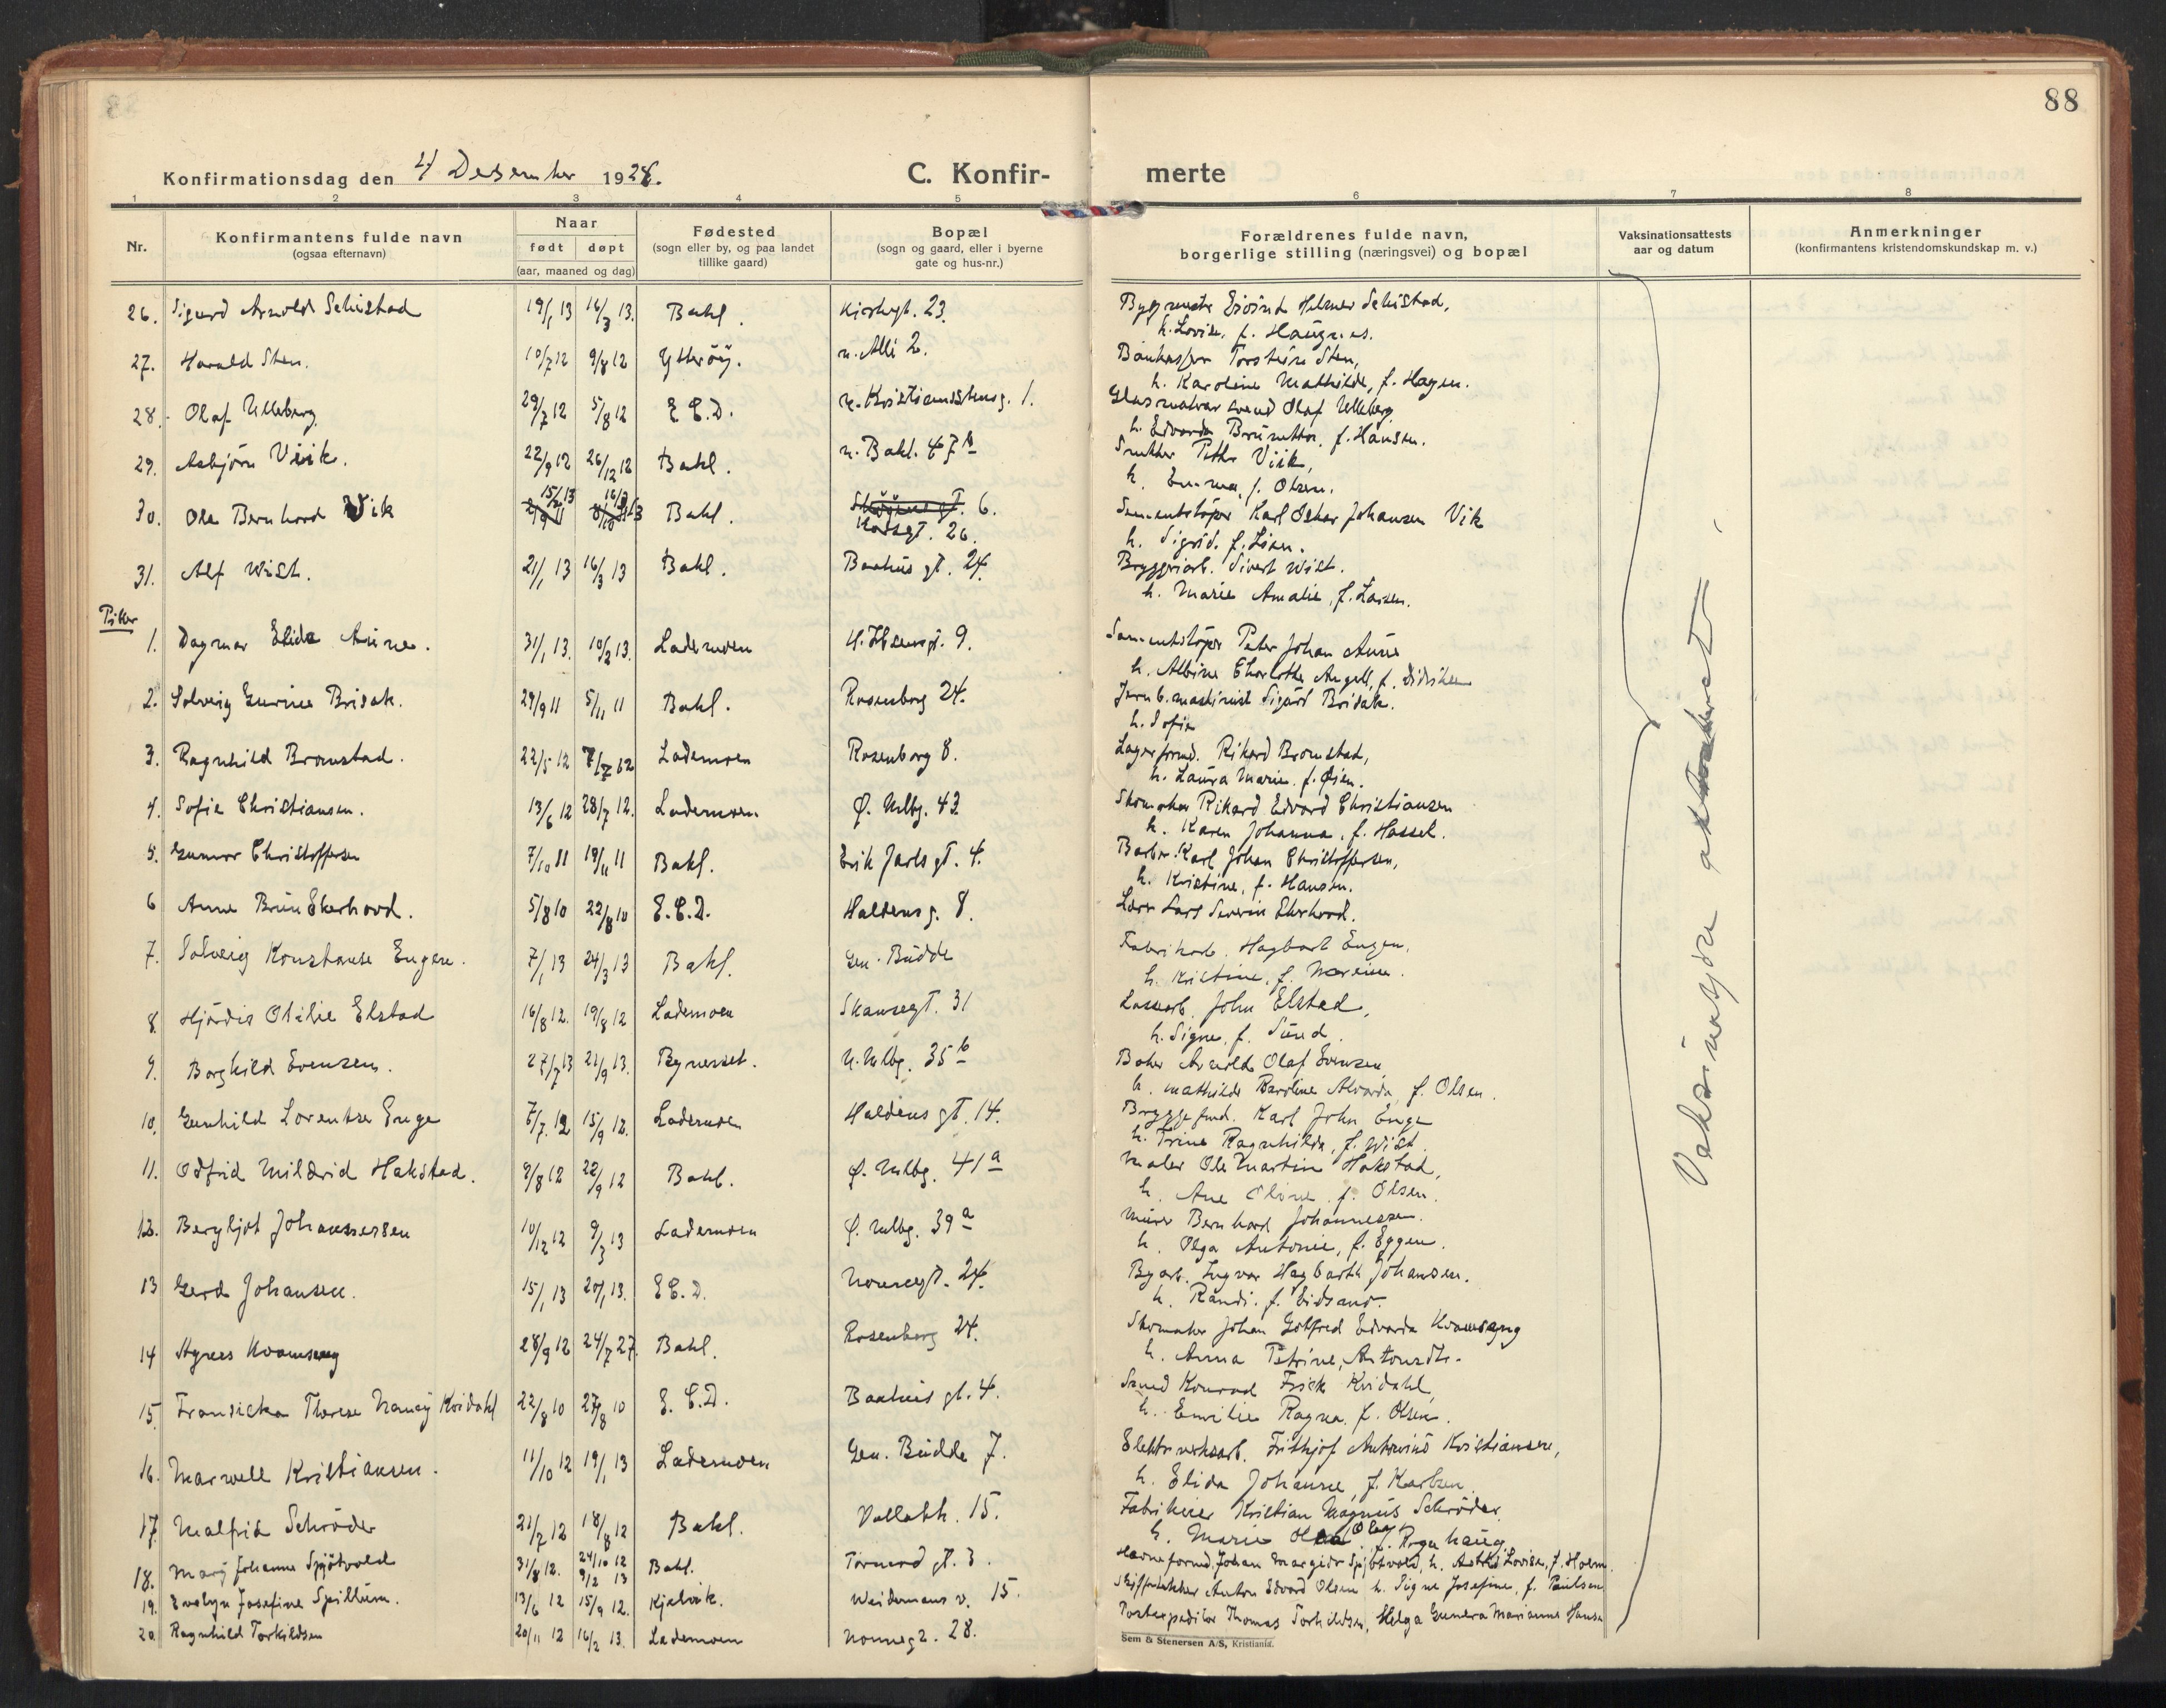 88
Konfirmationsdag den 4 Desember 1928.
C. Konfir-
merte
1 2 3 4 5 6 7 8
Nr. Konfirmantens fulde navn (ogsaa efternavn) Naar født døpt (aar, maaned og dag) Fødested (sogn eller by, og paa landet tillike gaard) Bopæl (sogn og gaard, eller i byerne gate og hus-nr.)
Forældrenes fulde navn, borgerlige stilling (næringsvei) og bopæl Vaksinationsattests aar og datum Anmerkninger (konfirmantens kristendomskundskap m. v.)
26. Sigurd Arnold Schistad 19/1 13 16/3 13. Bakl. Kirkegt. 23. Eivind Helmer Schistad,
h. Lovise, f. Haugnes.
27. Harald Sten. 10/7 12 9/8 12 Ytterøy. n. Allé 2. Torstein Sten,
h. Karoline Mathilde, f. Hagen.
28. Olaf Ulleberg 29/7 12 5/8 12 E.C.D. n. Kristianstensg. 1. Olaf Ulleberg
h. Edvarda f. Hansen.
29. Asbjørn Viik. 22/9 12 26/12 12 Bakl. n. Bakl. 47 b Snekker Petter Viik,
h. Emma, f. Olsen.
30. Ole Bernhard Vik 15/2 13 16/3 13 Bakl. 6.
26. Sementstøper Karl Oskar Johansen Vik
h. Sigrid, f. Lien.
31. Alf Wist. 21/1 13 16/3 13 Bakl. Baahus gt. 24. Bryggriarb. Sivert Wist.
h. Marie Amalie, f. Larsen.
Piker
1. Dagmar Elida Aune. 31/1 13. 10/2 13. Lademoen H. Ibsensgt. 9. Sementstøper Peter Johan Aune
h. Albine Charlotte Angell, f. Didriksen
2. Solveig Gurine Brisak. 29/9 11 5/11 11 Bakl. Rosenborg 24. Jernb. maskinist Sigurd Brisak.
h. Sofie
3. Ragnhild Bromstad. 22/5 12 7/7 12 Lademoen Rosenborg 8. Lagerformd. Rikard Bromstad,
h. Laura Marie, f. Øien.
4. Sofie Christiansen. 13/6 12 28/7 12. Lademoen Ø. Mlbg. 43 Skomaker Rikard Edvard Christiansen
h. Karen Johanna, f. Hassel.
5. Gunvor Christoffersen 7/10 11 19/11 11 Bakl. Erik Jarls gt. 4. Barber Karl Johan Christoffersen,
h. Kristine, f. Hansen.
6 Anne Brun Ekerhovd. 5/8 10 22/8 10 E.C.D. Haldensg. 8. Lærer Lars Severin Ekerhovd.
7. Solveig Konstanse Engen. 7/1 13 24/3 13 Bakl. Gen. Budde Fabrikarb. Hagbart Engen,
h. Kristine, f.
8 Hjørdis Otilie Elstad 16/8 12. 19/8 12 Lademoen Skansegt. 31 Lossearb. John Elstad,
h. Signe, f. Sund.
9. Borghild Evensen. 27/7 13 21/9 13. Bynesset. n. Mlbg. 35 b Baker Arnold Olaf Evensen,
h. Mathilde Karoline Alvarda, f. Olsen.
10. Gunhild Lorentze Enge 7/7. 12 15/9 12. Lademoen Haldens gt. 14. Bryggeformd. Karl John Enge
h. Trine Ragnhilda, f. Wist.
11. Odfrid Mildrid Hakstad. 9/8 12 22/9 12 Bakl. Ø. Mlbg. 41 a Maler Ole Martin Hakstad,
h. Ane Oline, f. Olsen.
12. Bergljot Johannessen 10/12 12 9/3 13 Lademoen Ø. Mlbg. 39 a Murer Bernhard Johannessen.
h. Olga Antonie, f. Eggen.
13 Gerd Johansen. 15/1 13 20/1 13. E.C.D. Nonnegt. 24. Byarb. Ingvar Hagbarth Johansen.
h. Randi, f. Eidsand.
14 Agnes Kvamseng 28/9 12 24/7 27. Bakl. Rosenborg 24. Skomaker Johan Gotfred Edvarda Kvamseng
h. Anna Petrine, Antonsdtr.
15. Fransiska Therese Nancy Kvidahl 22/8 10 27/8 10 E.C.D. Baahus gt. 4. Smed Konrad Frick Kvidahl,
h. Emilie Ragna, f. Olsen.
16. Marvell Kristiansen. 11/10 12 19/1 13 Lademoen Gen. Budde 7. Elektr.verksarb. Frithjof Antonius Kristiansen,
h. Elida Johanne, f. Karlsen.
17. Malfrid Schrøder 21/7 12 18/8 12 Bakl. Vollabk. 15. Fabrikeier Kristian Magnus Schrøder,
h. Marie Olea, f.
18. Mary Johanne Spjøtvold 31/8 12. 24/10 12 9/2 13 Bakl. Tormod gt. 3. Havneformd. Johan Margido Spjøtvold, h. Astrid Lovise, f. Holm.
19. Evelyn Josefine Spillum. 13/6 12 15/9 12. Kjelvik. Weidemans v. 15. Anton Edvard Olsen h. Signe Josefine, f. Paulsen
20. Ragnhild Torkildsen 20/11 12 16/2 13. Lademoen Nonnegt. 28. Postexpeditør Thomas Torkildsen, Helga Gunera Marianne Hansen
Vaksinasjon attestert
Sem & Stenersen A/S, Kristiania.